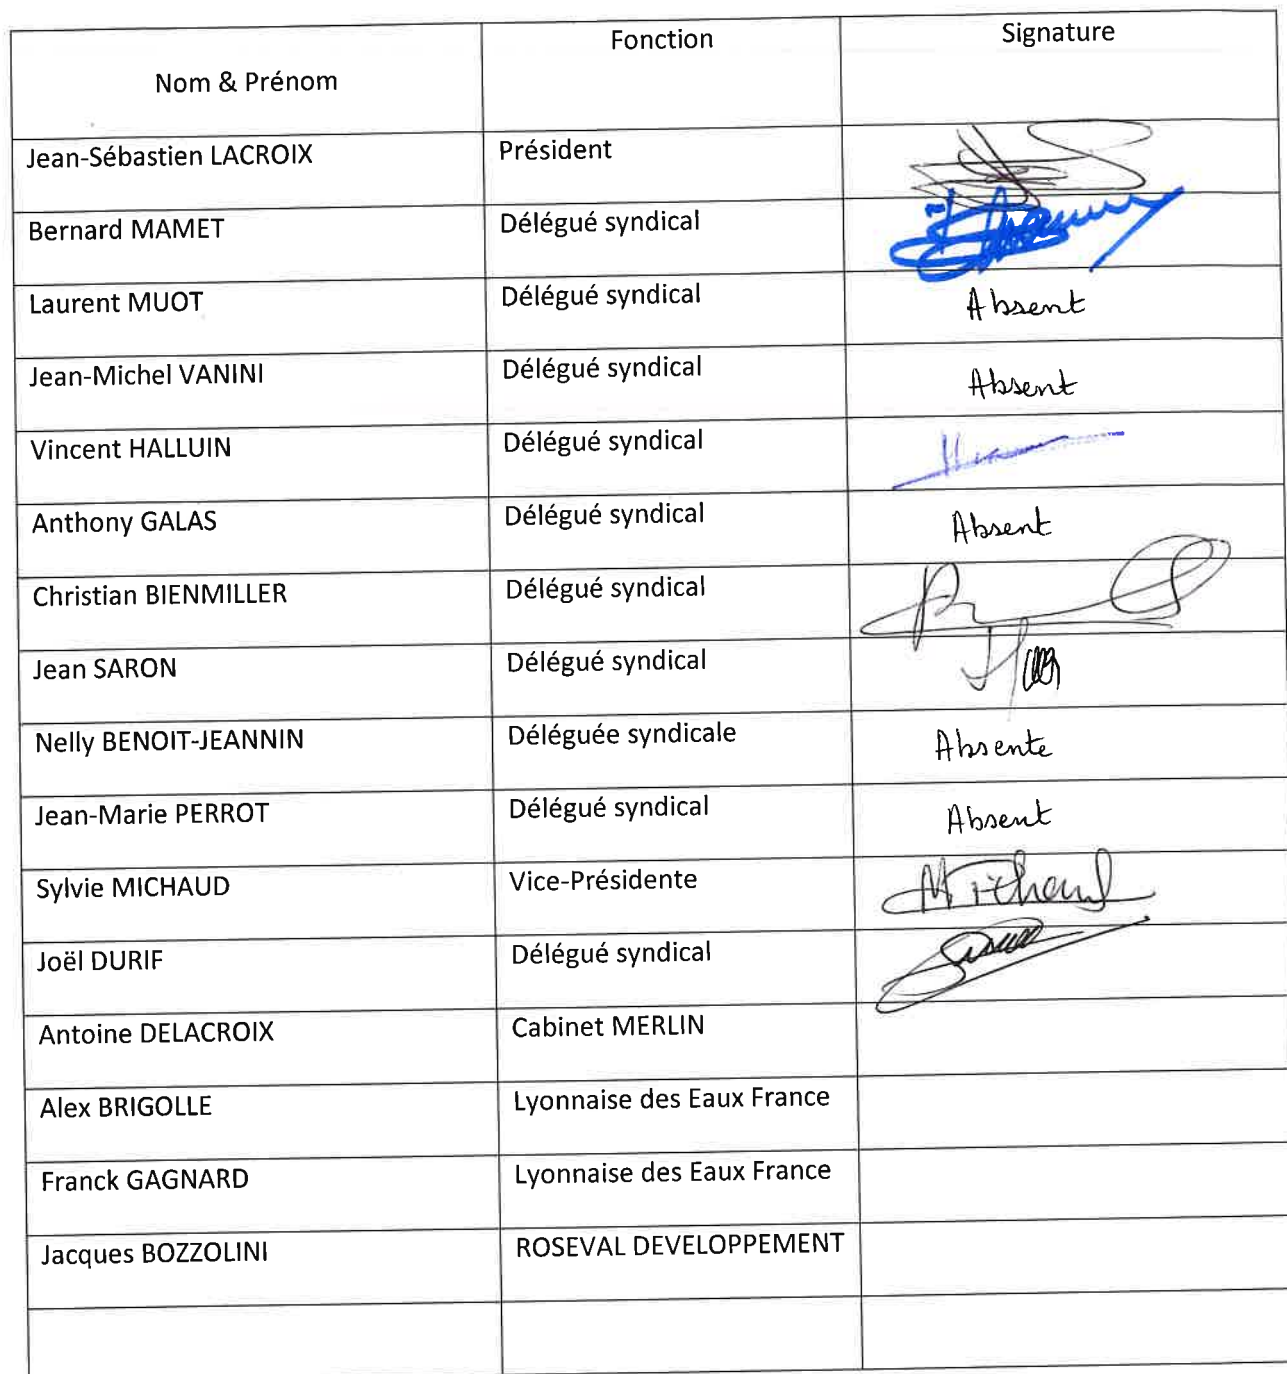 Nom & Prénom Fonction Signature
Jean-Sébastien LACROIX Président
Bernard MAMET Délégué syndical
Laurent MUOT Délégué syndical Absent
Jean-Michel VANINI Délégué syndical Absent
Vincent HALLUIN Délégué syndical
Anthony GALAS Délégué syndical Absent
Christian BIENMILLER Délégué syndical
Jean SARON Délégué syndical
Nelly BENOIT-JEANNIN Déléguée syndicale Absente
Jean-Marie PERROT Délégué syndical Absent
Sylvie MICHAUD Vice-Présidente Michaud
Joël DURIF Délégué syndical
Antoine DELACROIX Cabinet MERLIN
Alex BRIGOLLE Lyonnaise des Eaux France
Franck GAGNARD Lyonnaise des Eaux France
Jacques BOZZOLINI ROSEVAL DEVELOPPEMENT